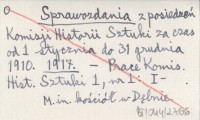 Sprawozdania z posiedzeń
Komisji Historii Sztuki za czas
od 1 stycznia do 31 grudnia
1910. 1917. — Prace Komis.
Hist. Sztuki 1, nr 1 - I -
M. in. kościół w Dębnie